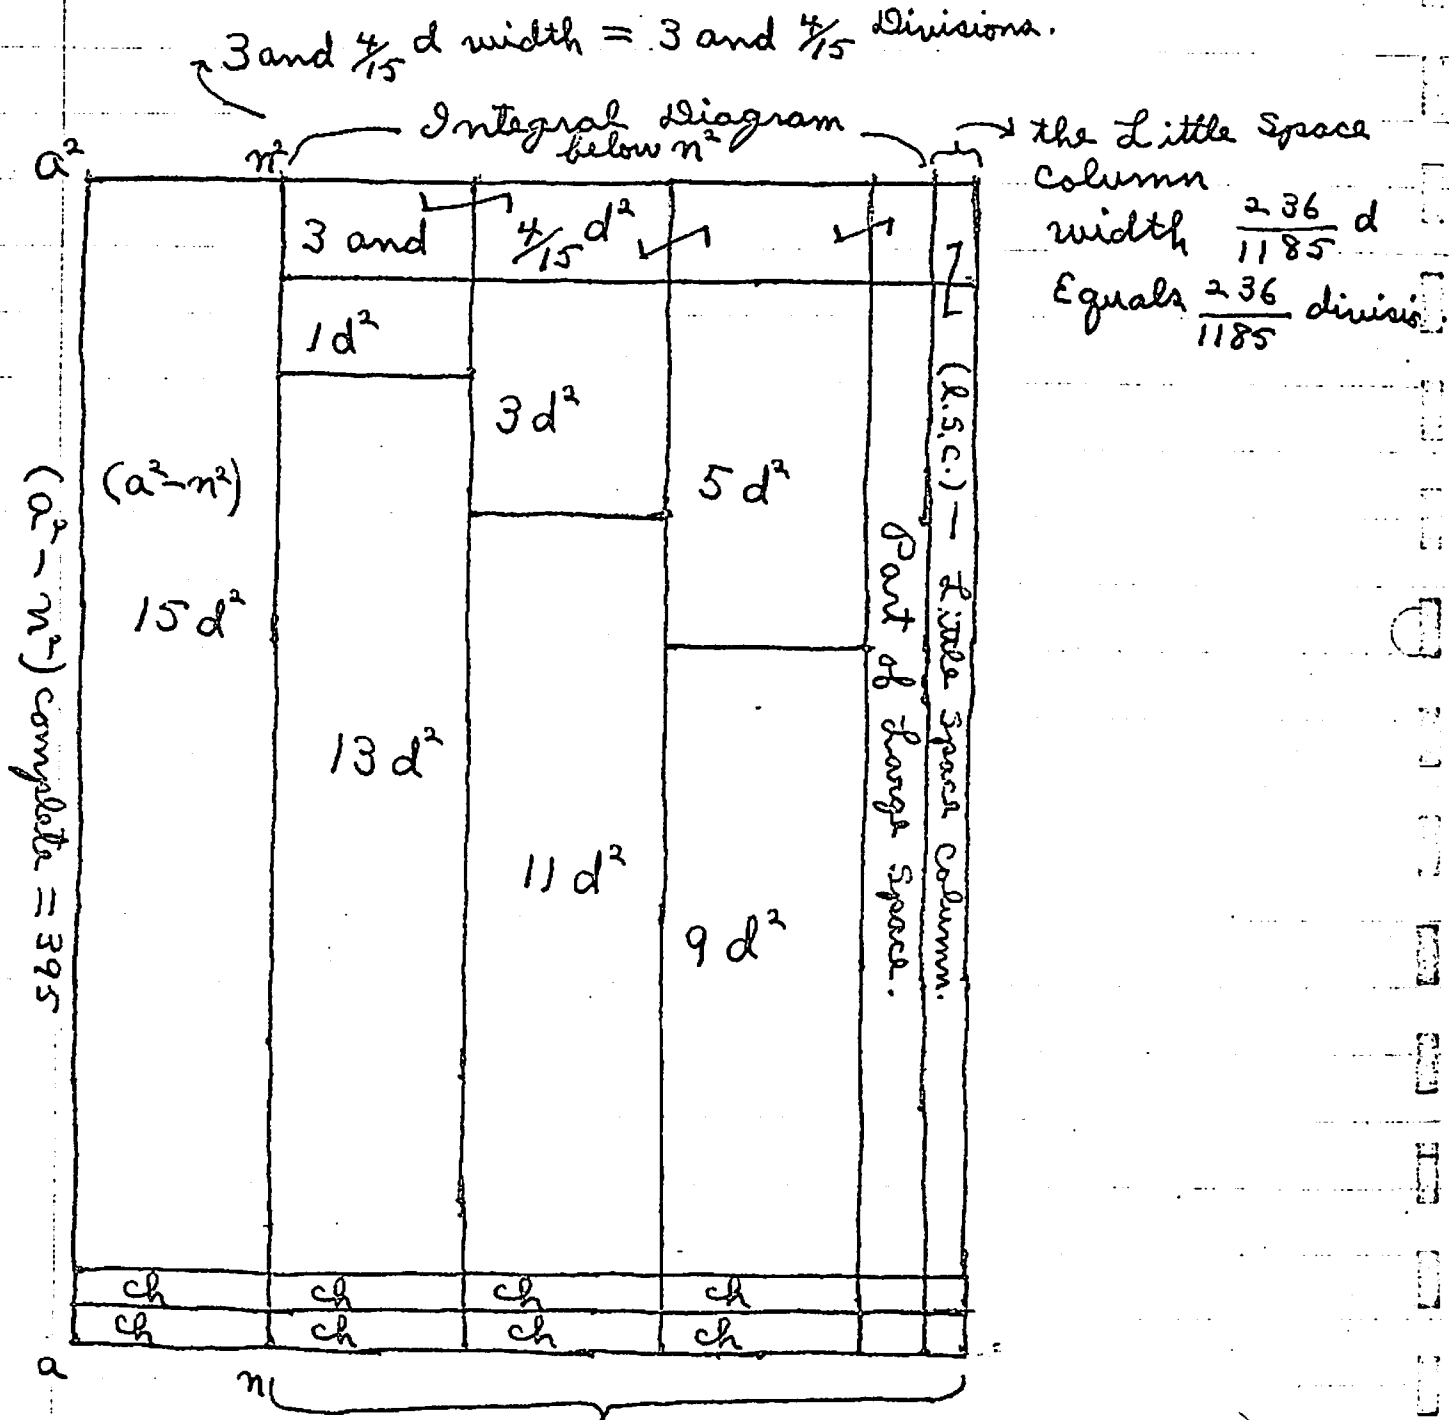 3 and 4/15 d width = 3 and 4/15 Divisions.
Integral Diagram
below n²
the Little Space
Column
width 236/1185 d
Equals 236/1185 divisi
a²
n²
3 and 4/15 d²
1 d²
3 d²
5 d²
(a²-n²)
15 d²
13 d²
11 d²
9 d²
Part of Large Space.
(l.s.c.) — Little Space Column.
(a² - n²) complete = 395
ch ch ch ch
ch ch ch ch
a
n